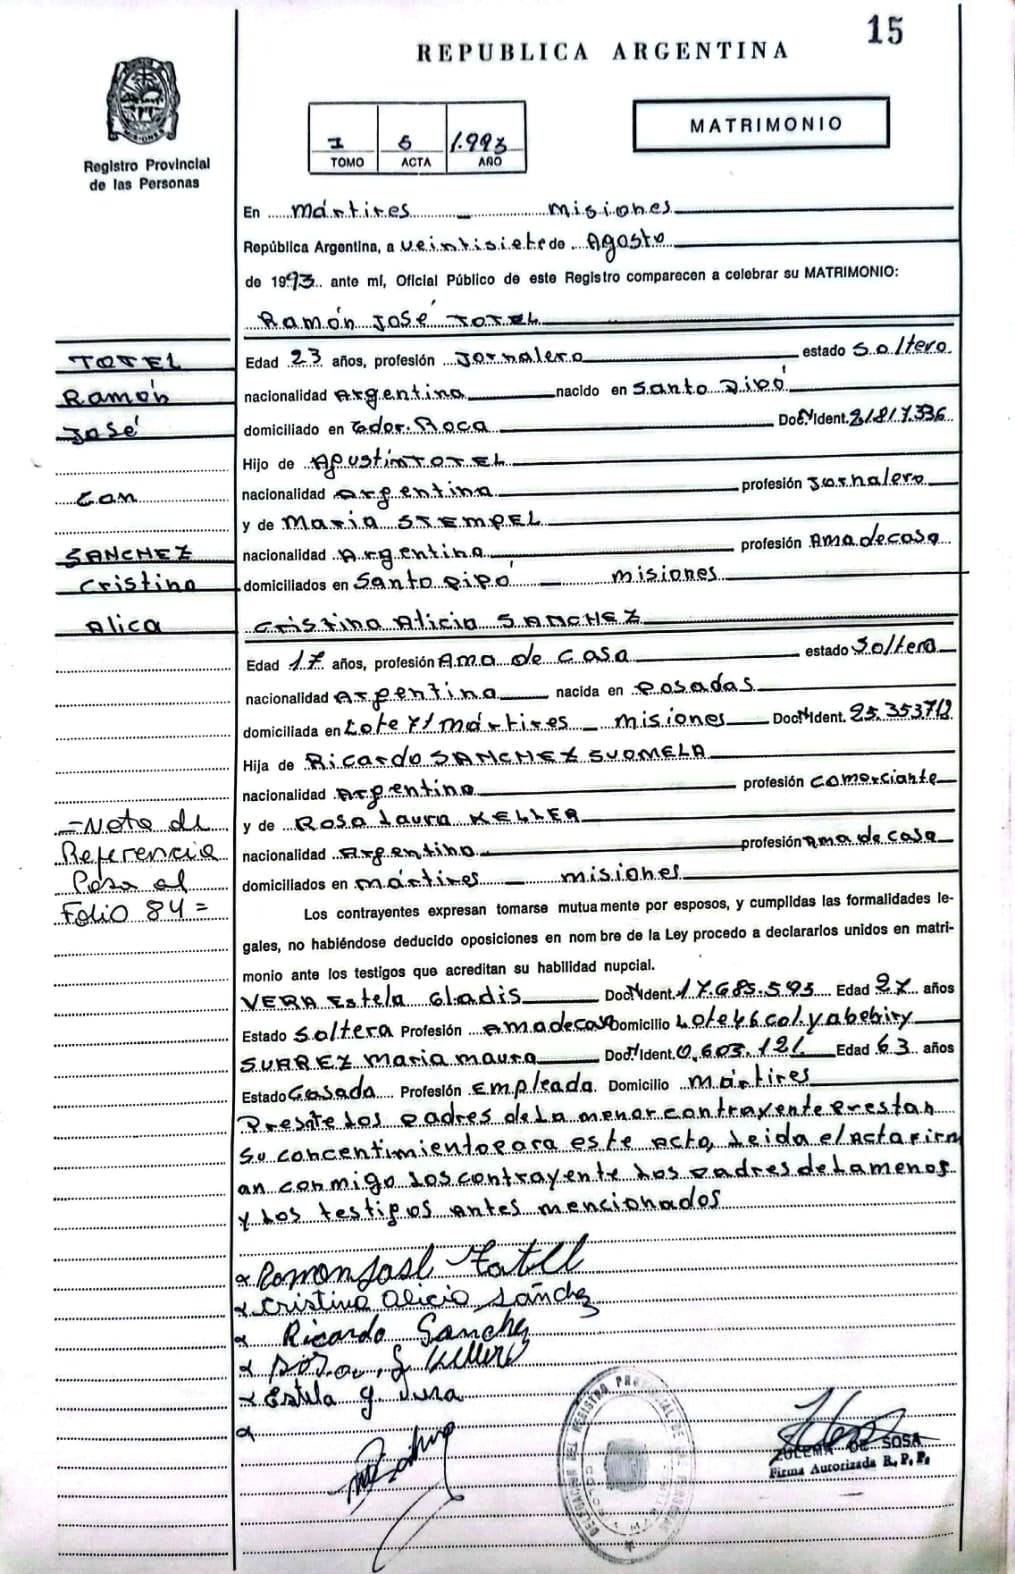 15
REPUBLICA ARGENTINA
MATRIMONIO
I 5 1.993
TOMO ACTA AÑO
Registro Provincial
de las Personas
En mártires misiones
República Argentina, a veintisiete de Agosto
de 1993 ante mí, Oficial Público de este Registro comparecen a celebrar su MATRIMONIO:
Ramón José TOTEL
TOTEL
Ramón
José
Con
SANCHEZ
Cristina
Alica
Edad 23 años, profesión Jornalero estado Soltero
nacionalidad Argentina nacido en Santo Pipó
domiciliado en Gdor. Roca Doc. Ident.
Hijo de Agustin TOTEL
nacionalidad Argentina profesión Jornalero
y de Maria STEMPEL
nacionalidad Argentina profesión Ama de casa
domiciliados en Santo Pipó misiones
Cristina Alicia SANCHEZ
Edad 17 años, profesión Ama de Casa estado Soltera
nacionalidad Argentina nacida en Posadas
domiciliada en Lote 71 mártires misiones Doc. Ident.
Hija de Ricardo SANCHEZ SUOMELA
nacionalidad Argentina profesión comerciante
y de Rosa Laura KELLER
nacionalidad Argentina profesión Ama de casa
domiciliados en mártires misiones
-Nota de
Referencia
Pasa al
Folio 84=
Los contrayentes expresan tomarse mutuamente por esposos, y cumplidas las formalidades le-
gales, no habiéndose deducido oposiciones en nombre de la Ley procedo a declararlos unidos en matri-
monio ante los testigos que acreditan su habilidad nupcial.
VERA Estela Gladis Doc. Ident. 17.685.593 Edad 27 años
Estado Soltera Profesión Ama de casa Domicilio Lote 46 Col. Yabebiry
SUAREZ Maria Maura Doc. Ident. 0,603.121 Edad 63 años
Estado Casada Profesión Empleada. Domicilio Mártires
Presente Los Padres de La menor contrayente Prestan
Su concentimiento para este Acto, Leida el Acta firm
an conmigo Los contrayente Los Padres de La menos
y Los testigos antes mencionados
Ramon José Totel
Cristina Alicia Sánchez
Ricardo Sanchez
Estela G. Vera
ZULEMA DE SOSA
Firma Autorizada R. P. P.